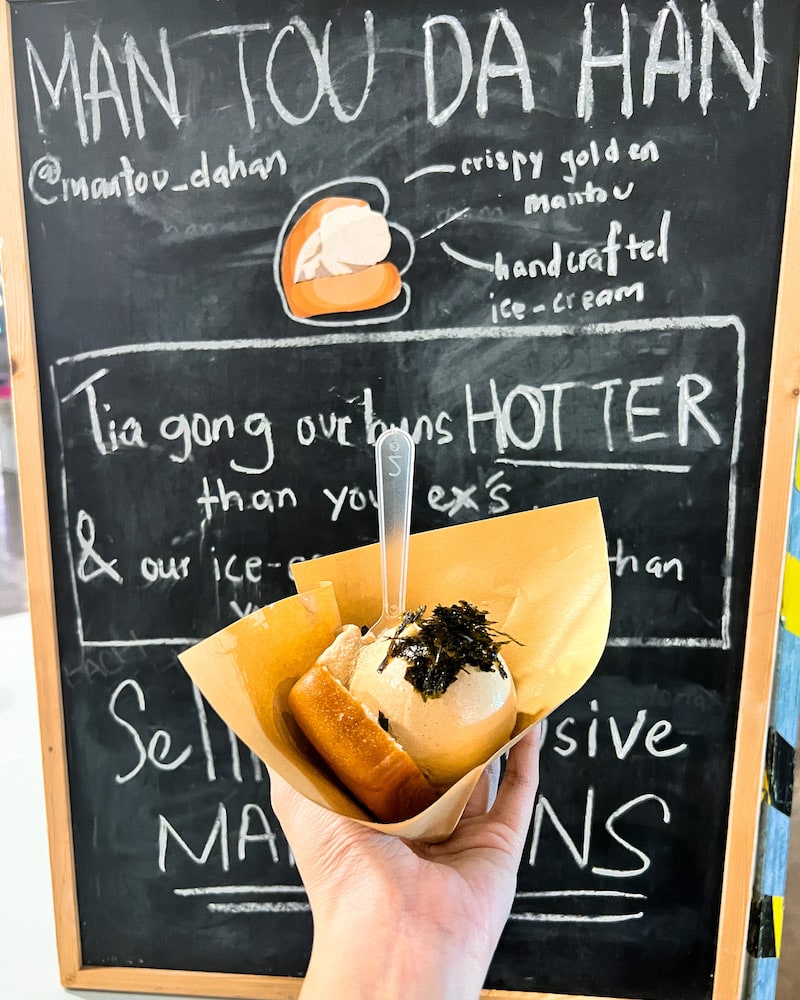 MAN TOU DA HAN
@mantou_dahan
crispy golden
mantou
handcrafted
ice-cream
Tia gong our buns HOTTER
than your ex's
& our ice- than
Sell sive
MA NS